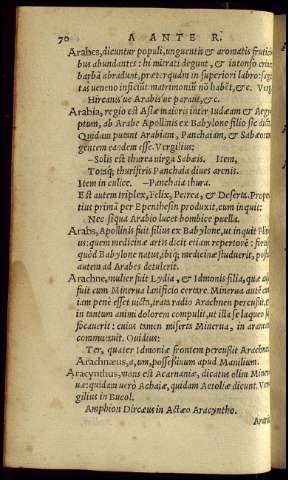 70 A ANTE R.
Arabes, dicuntur populi, unguentis & aromatis frutici
bus abundantes: hi mitrati degunt, & intonso crine
barbā abradunt, præterquàm in superiori labro: sagit
tas veneno inficiūt matrimoniū nō habēt, &c. Ver
Hircanis ue Arabis ue parant, &c.
Arabia, regio est Asiæ maioris inter Iudæam & Aegy
ptum, ab Arabe Apollinis ex Babylone filio sic dicta
Quidam putant Arabiam, Panchaiam, & Sabæorum
gentem eandem esse. Vergilius:
-Solis est thurea virga Sabæis. Item,
Totaq; thuriferis Panchaia diues arenis.
Item in culice. -Panchaia thura.
Est autem triplex, Felix, Petrea, & Deserta. Proper
tius primā per Epenthesin produxit, cum inquit:
Nec si qua Arabio lucet bombice puella.
Arabs, Apollinis fuit filius ex Babylone, ut inquit Plin
us: quem medicinæ artis dicit etiam repertorē: siue
quòd Babylone natus, ibiq; medicinæ studuerit, post
autem ad Arabes detulerit.
Arachne, mulier fuit Lydia, & Idmonis filia, quæ au
fuit cum Minerua lanificio certare. Minerua autē cum
iam penè esset victa, irata radio Arachnen percußit, &
in tantum animi dolorem compulit, ut illa se laqueo suf
focauerit: cuius tamen miserta Minerua, in araneam
commutauit. Ouidius:
Ter, quater Idmoniæ frontem percußit Arachnes.
Arachnæus, a, um, possessiuum apud Manilium.
Aracynthus, mons est Acarnaniæ, dicatus olim Miner
uæ: quidam verò Achaiæ, quidam Aetoliæ dicunt. Ver
gilius in Bucol.
Amphion Dircæus in Actæo Aracyntho.